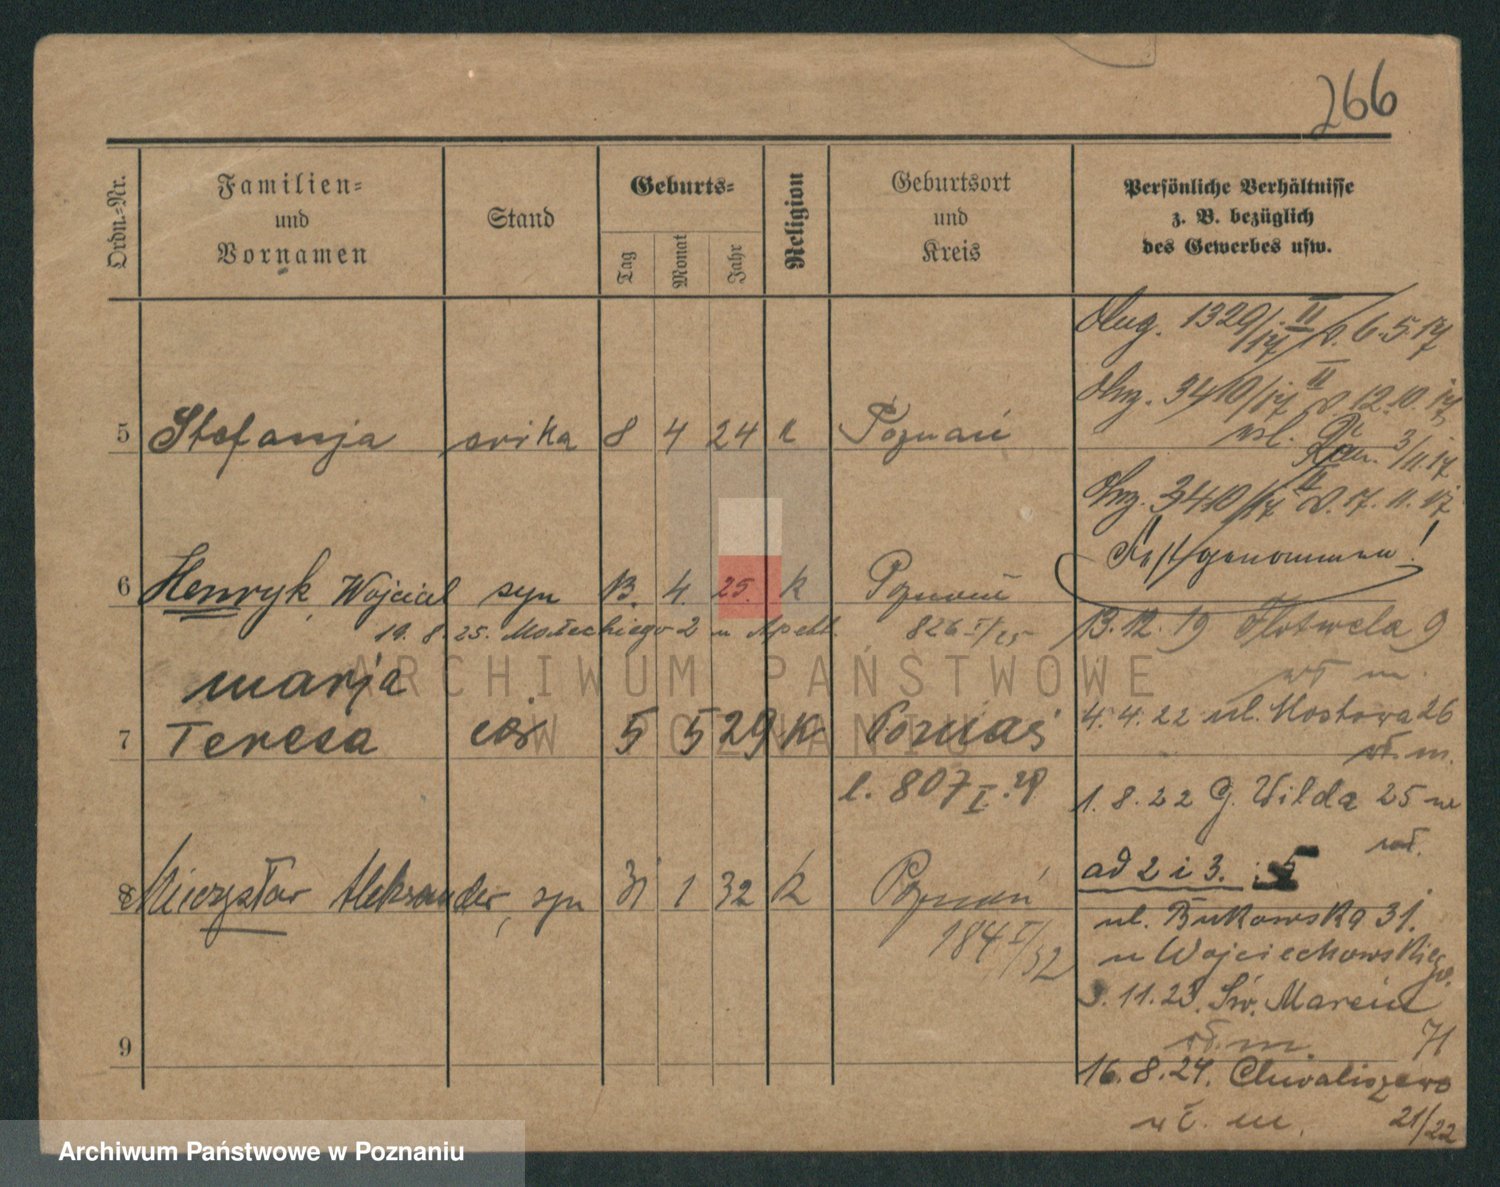 266
Ordn.-Nr.
Familien- und Vornamen
Stand
Geburts-
Tag
Monat
Jahr
Religion
Geburtsort und Kreis
Persönliche Verhältnisse
z. B. bezüglich
des Gewerbes usw.
1329/17 II v. 6.5.17
3410/17 II v. 12.10.17
5 Stefanja 8 4 24 k Poznań
3/11.17
3410/17 II v. 17.11.17
Festgenommen!
6 Henryk, Wojciech syn 13. 4. 25. k Poznań
19. 8. 25. Małeckiego 2 u
826 I/25
13.12.19 Flotwela 9
marja
4.4.22 ul. Mostowa 26
7 Teresa cór 5 5 29 K Poznań
wł. m.
l. 807 I. 29
1. 8. 22 G. Wilda 25 u
ad 2 i 3.
8 Mieczysław Aleksander, syn 31 1 32 k Poznań
ul. Bukowska 31.
184 I/32
u Wojciechowskiego.
3.11.23. Św. Marcin
71
wł. m.
9
16.8.24. Chwaliszewo
21/22
wł. m.
ARCHIWUM PAŃSTWOWE
W POZNANIU
Archiwum Państwowe w Poznaniu